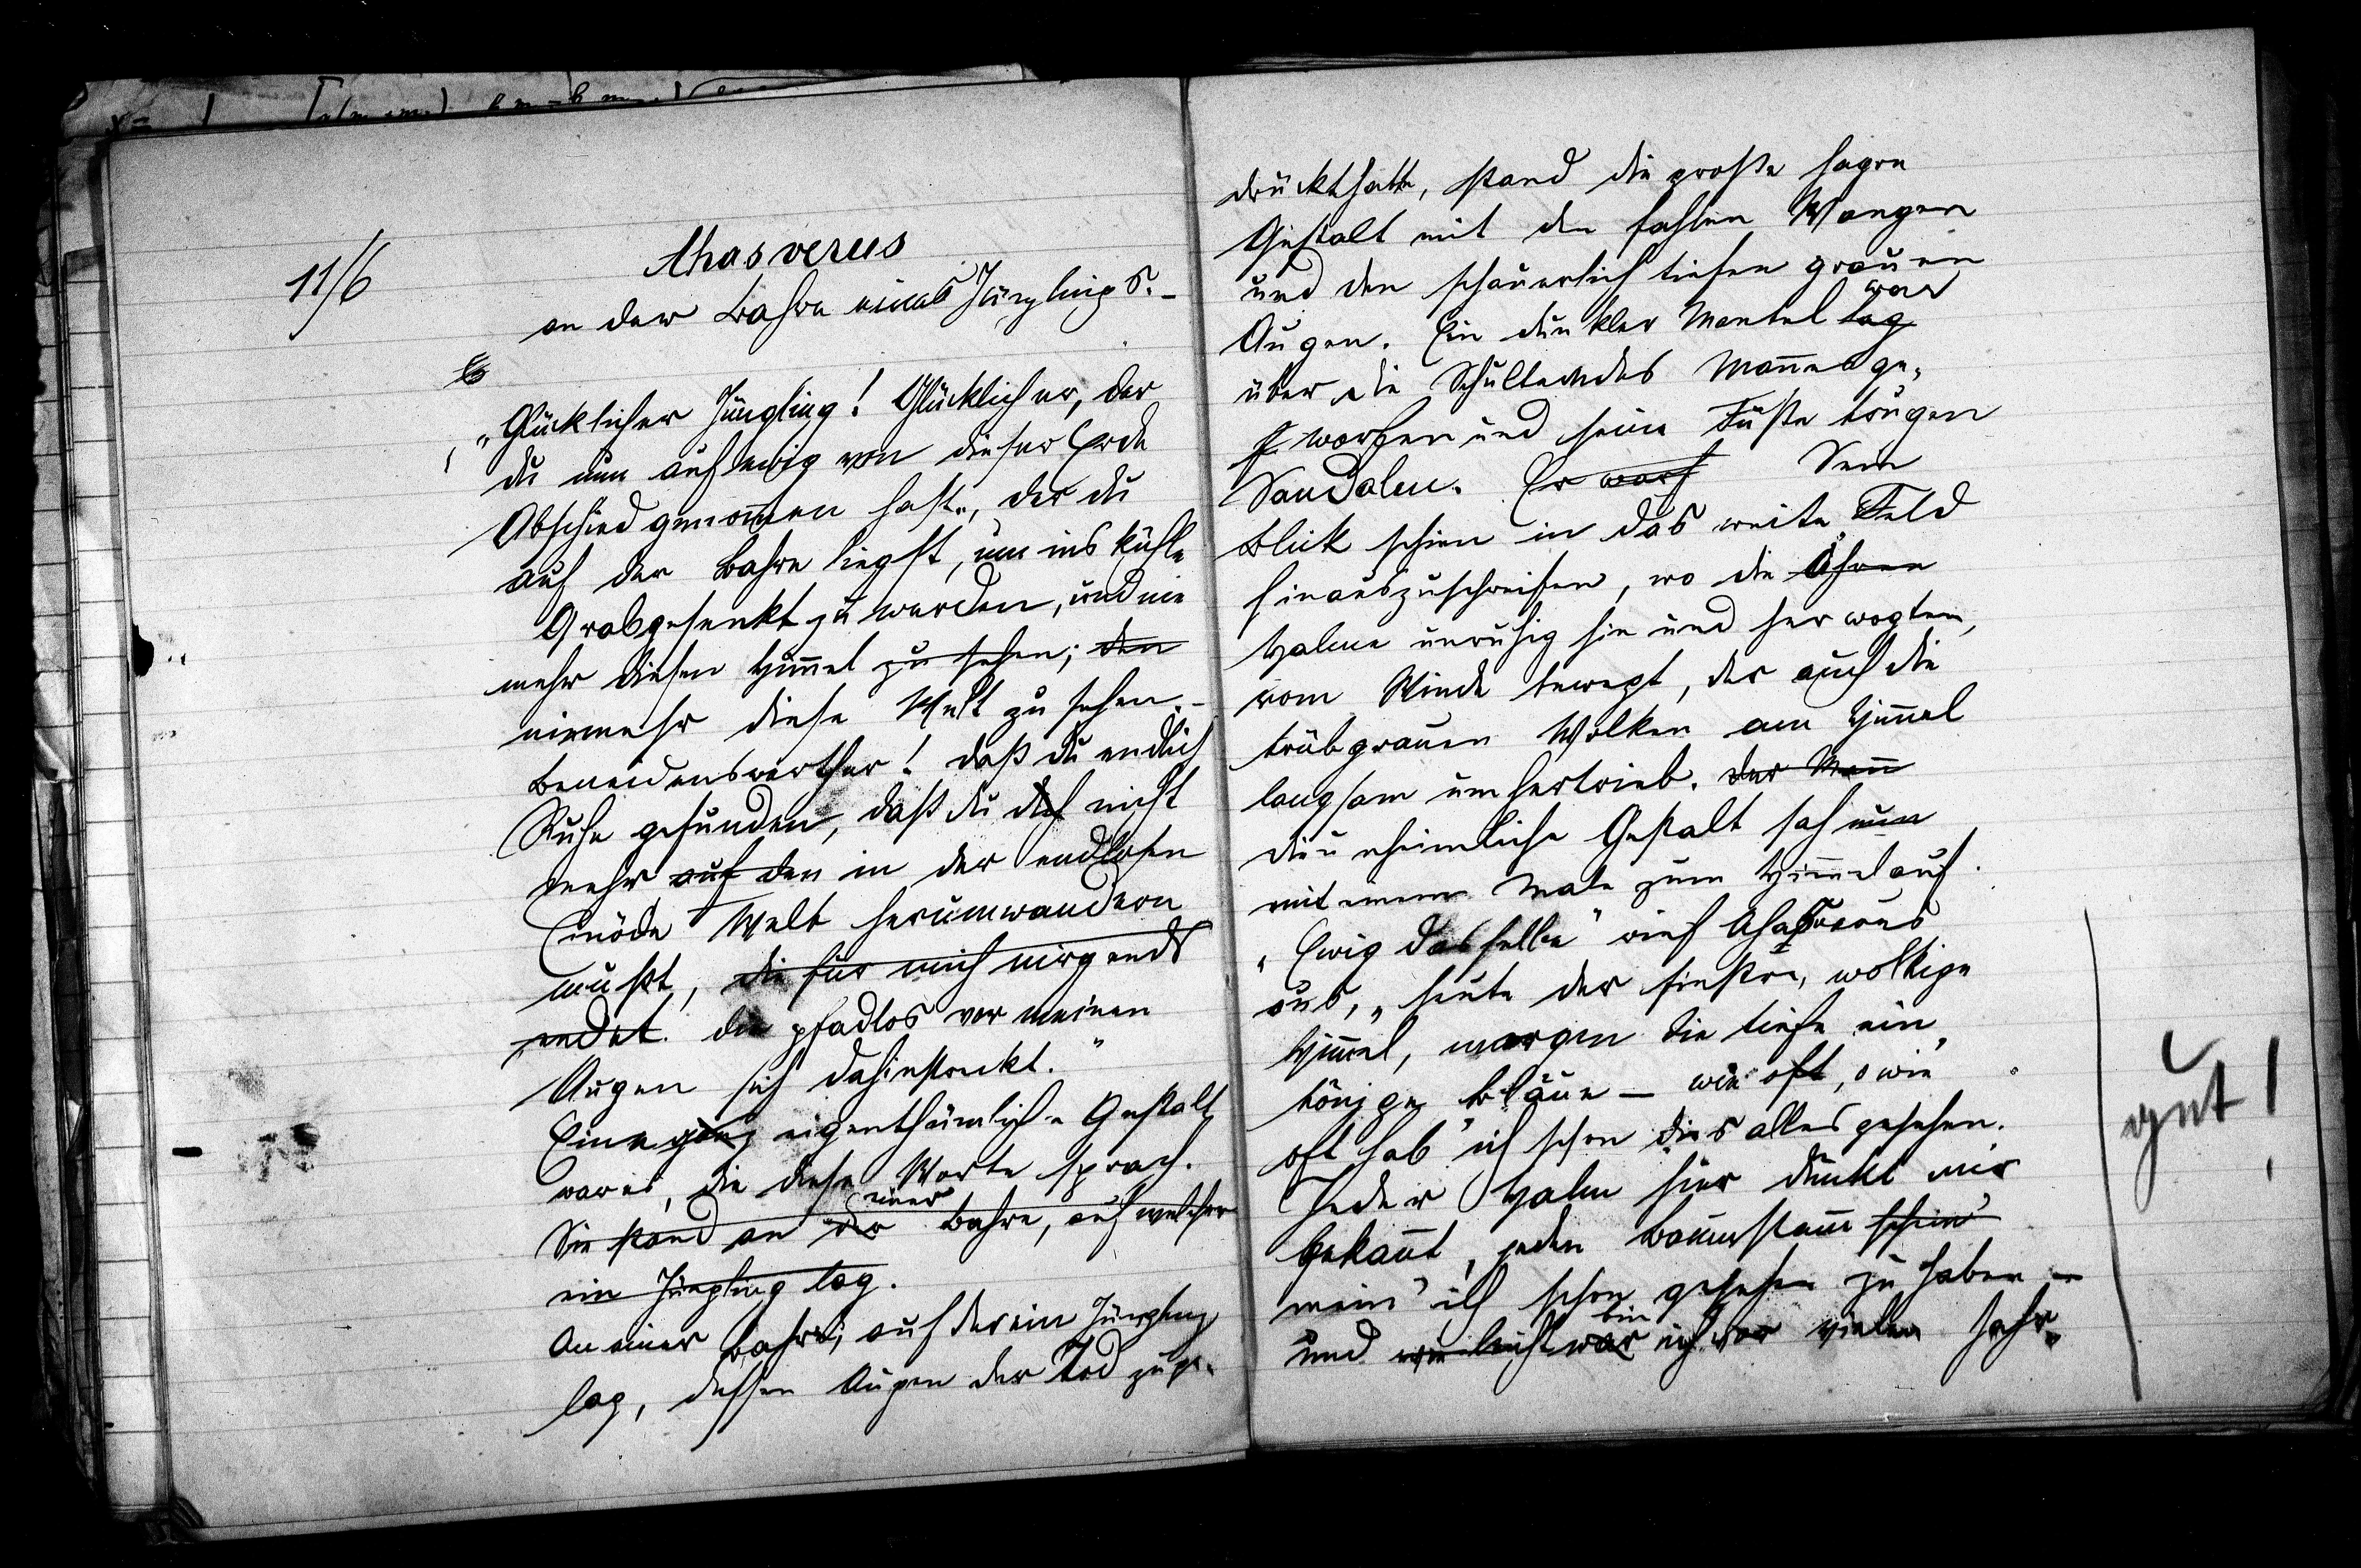 11/6
Ahasverus
an der Bahre eines Jünglings. –
Es
„Glücklicher Jüngling! Glücklicher, der
du nun auf ewig von dieser Erde
Abschied genom̅en hast, der du
auf der Bahre liegst, um ins kühle
Grab gesenkt zu werden, und nie
mehr diesen Him̅el zu sehen; den
niemehr diese Welt zu sehen. –
Beneidenswerther! daß du endlich
Ruhe gefunden, daß du dich nicht
mehr auf den in der endlosen
Einöde Welt herumwandern
mußt, die für mich nirgends
endet. die pfadlos vor meinen
Augen sich dahinstreckt."
Eine ganz eigenthümliche Gestalt
war es, die diese Worte sprach.
einer
Sie stand an der Bahre, auf welcher
ein Jüngling lag.
An einer Bahre, auf der ein Jüngling
lag, dessen Augen der Tod zuge-
drückt hatte, stand die große hagre
Gestalt mit den fahlen Wangen
und den schauerlich tiefen grauen
war
Augen. Ein dunkler Mantel lag
über die Schultern des Man̅es ge-
worfen und seine Füße trugen
Sandalen. Er warf Sein
Blick schien in das weite Feld
hinauszuschweifen, wo die Ähren
Halme unruhig hin und her wogten,
vom Winde bewegt, der auch die
trübgrauen Wolken am Him̅el
langsam umhertrieb. Der Man̅
die unheimliche Gestalt sah nun
mit einem Male zum Him̅el auf.
„Ewig dasselbe" rief Ahasverus
aus, „heute der finstre, wolkige
Him̅el, morgen die tiefe ein-
tönige Bläue – wie oft, o wie
oft hab' ich schon dies alles gesehen.
Jeder Halm hier dünkt mir
bekan̅t, jeden Baumstam̅ schein'
mein' ich schon gesehen zu haben –
bin
und vielleicht war ich vor vielen Jahr-
gut!